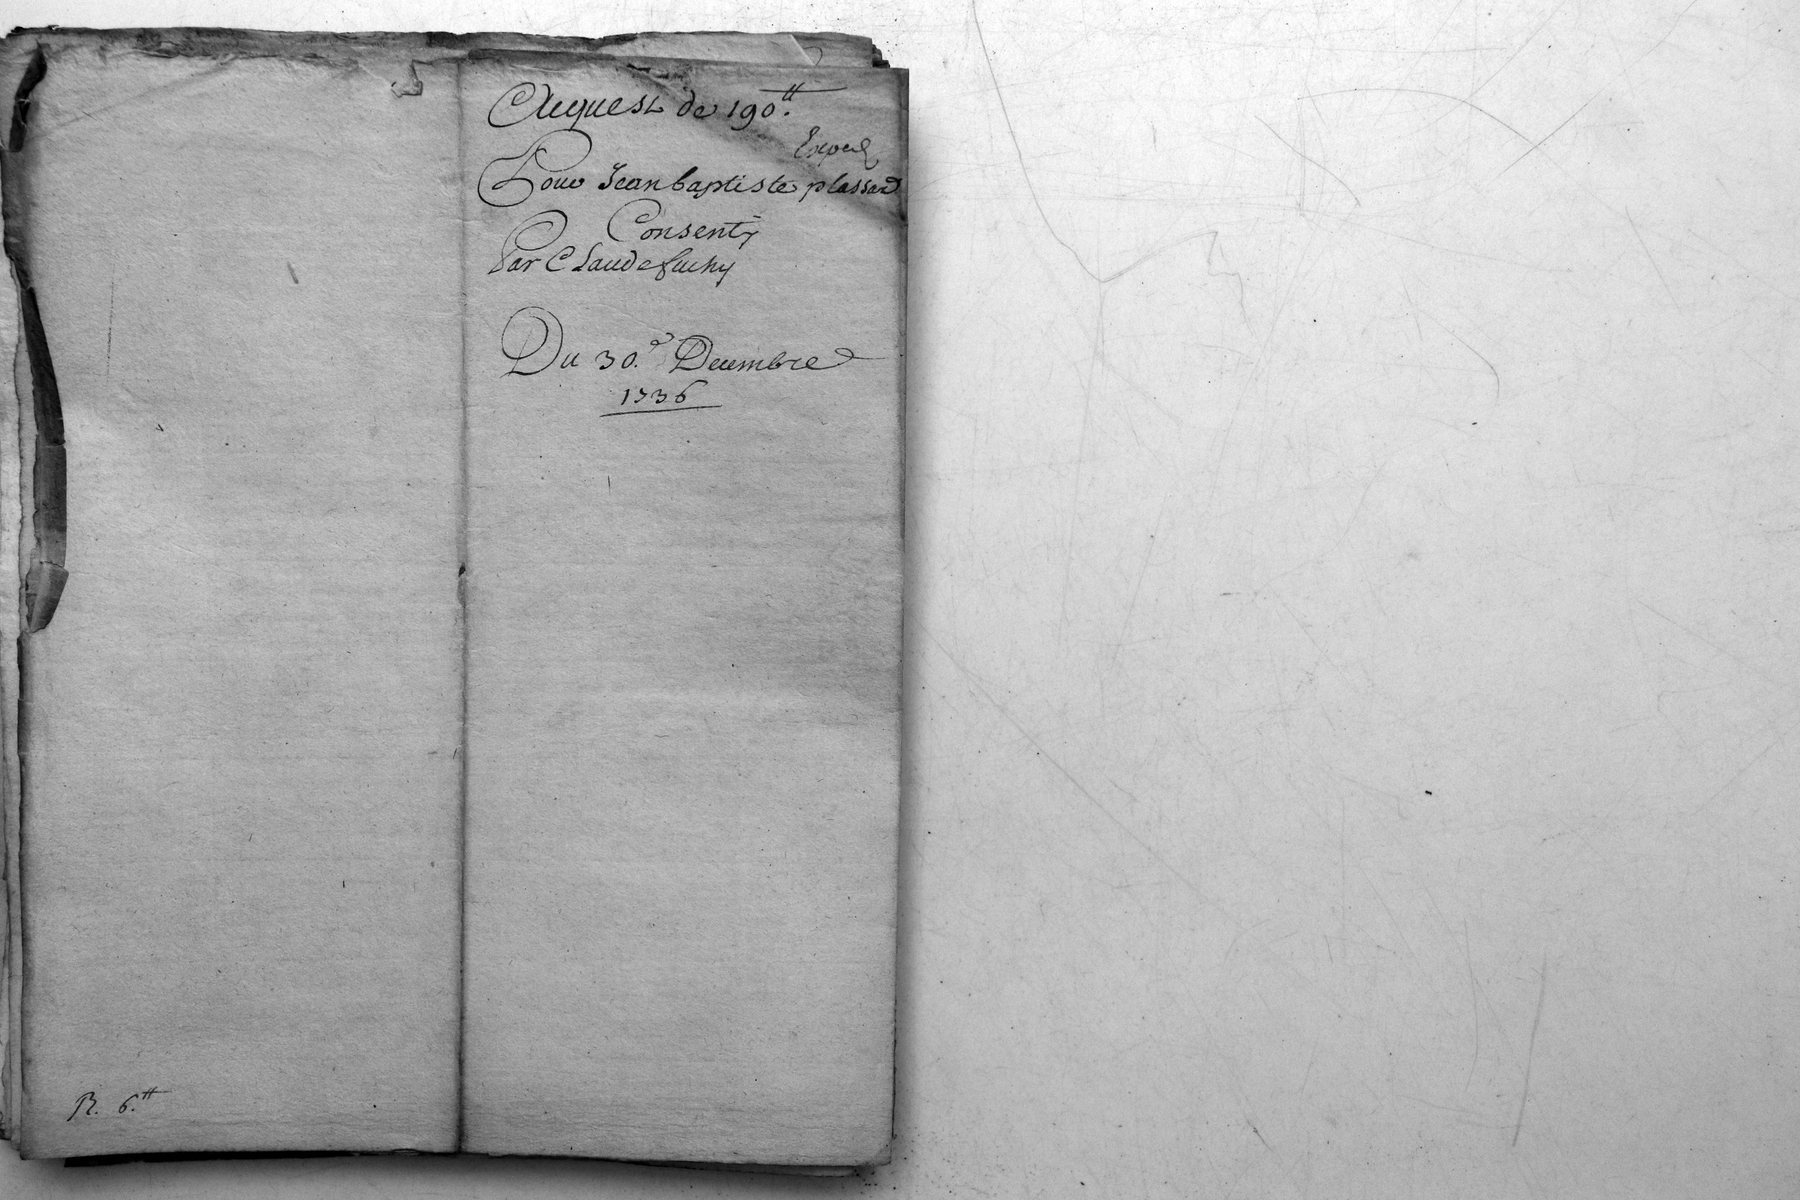 Acquest de 190.ᵗᵗ
Exped
Pour Jean baptiste plassard
Consenty
Par Claude fuchy
Du 30.ᵉ Decembre
1736
R. 6.ᵗᵗ